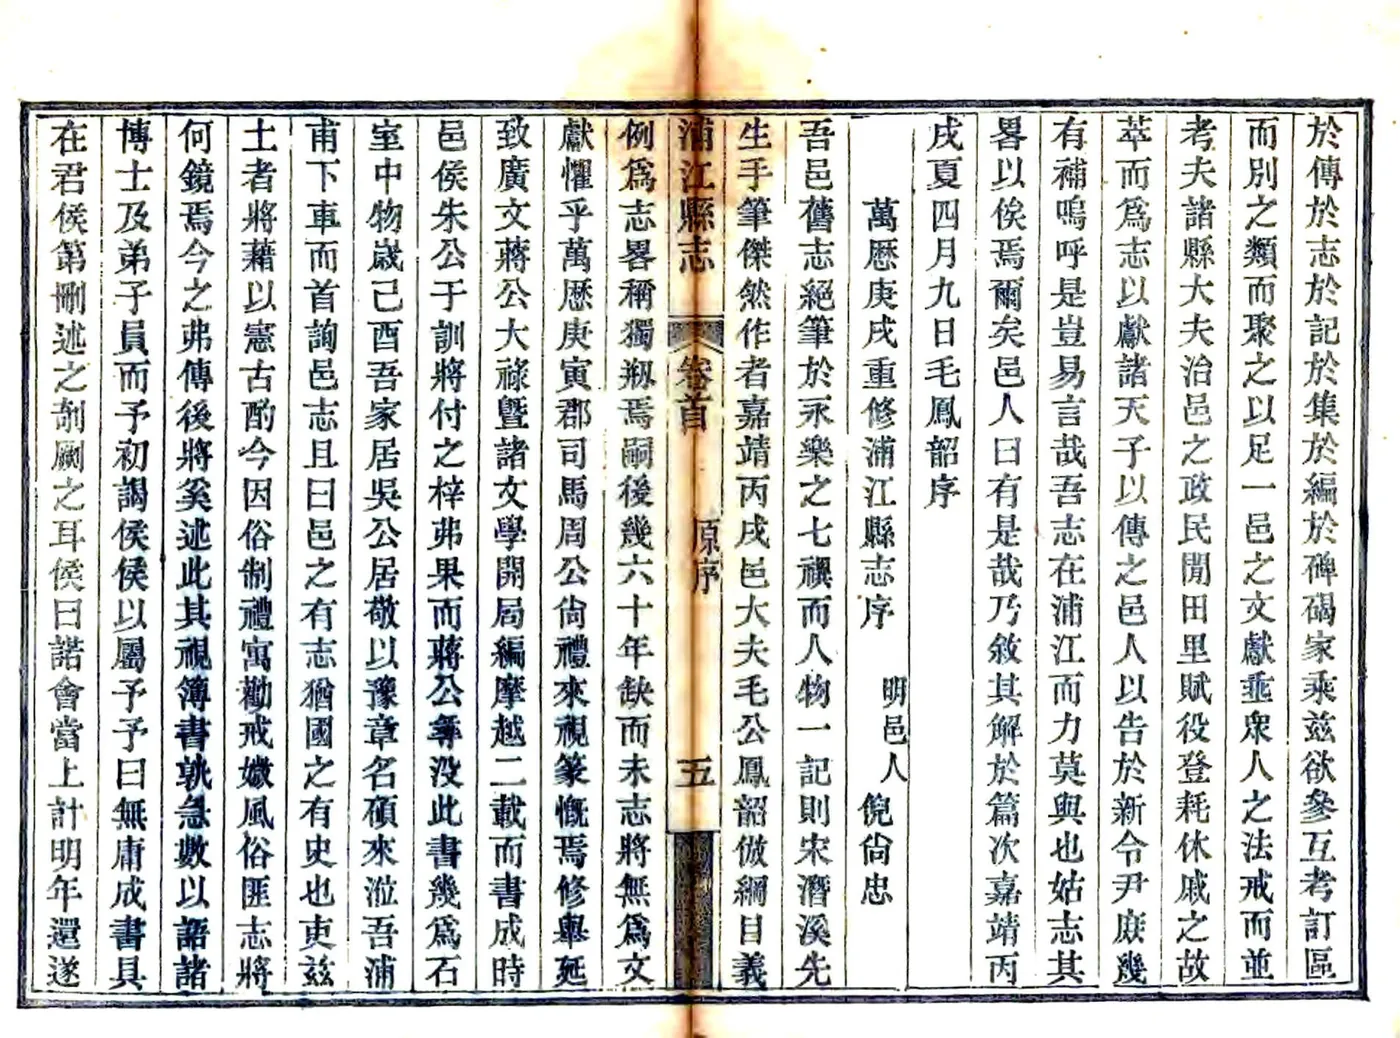 於傳於志於記於集於編於碑碣家乘茲欲參互考訂區
而別之類而聚之以足一邑之文獻埀衆人之法戒而並
考夫諸縣大夫治邑之政民閒田里賦役登耗休戚之故
萃而爲志以獻諸天子以傳之邑人以告於新令尹庶幾
有補嗚呼是豈易言哉吾志在浦江而力莫與也姑志其
畧以俟焉爾矣邑人曰有是哉乃敘其解於篇次嘉靖丙
戌夏四月九日毛鳳韶序
萬厯庚戌重修浦江縣志序 明邑人 倪尙忠
吾邑舊志絕筆於永樂之七禩而人物一記則宋潛溪先
生手筆傑然作者嘉靖丙戌邑大夫毛公鳳韶倣綱目義
浦江縣志 卷首 原序 五
例爲志畧稱獨剏焉嗣後幾六十年缺而未志將無爲文
獻懼乎萬厯庚寅郡司馬周公尙禮來視篆慨焉修舉延
致廣文蔣公大祿曁諸文學開局編摩越二載而書成時
邑侯朱公于訓將付之梓弗果而蔣公尋沒此書幾爲石
室中物歲己酉吾家居吳公居敬以豫章名碩來涖吾浦
甫下車而首詢邑志且曰邑之有志猶國之有史也吏茲
土者將藉以憲古酌今因俗制禮寓勸戒媺風俗匪志將
何鏡焉今之弗傳後將奚述此其視簿書孰急數以語諸
博士及弟子員而予初謁侯侯以屬予予曰無庸成書具
在君侯第刪述之剞劂之耳侯曰諾會當上計明年還遂